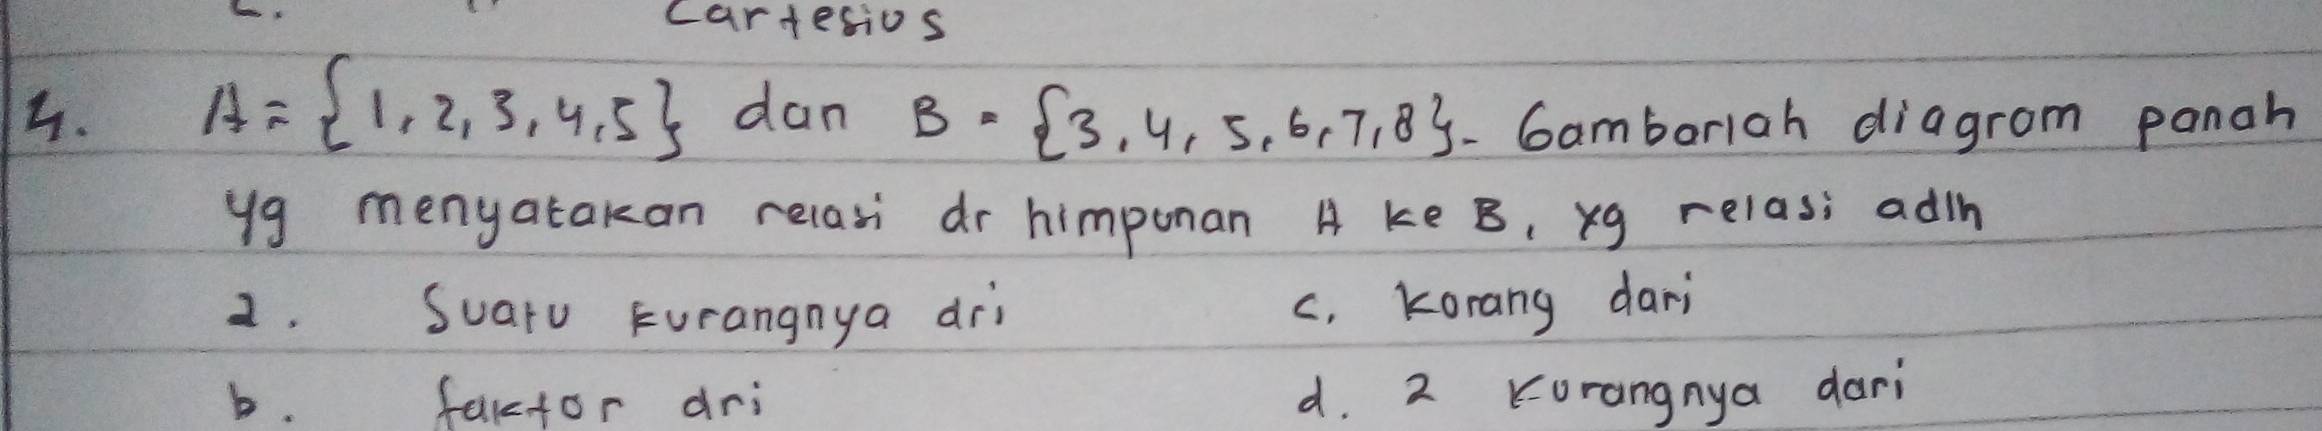 Cartesius
4. A = {1, 2, 3, 4, 5} dan B = {3, 4, 5, 6, 7, 8}. Gambarlah diagram panah
yg menyatakan relasi dr himpunan A ke B, yg relasi adlh
a. Suatu kurangnya dri c. Korang dari
b. faktor dri d. 2 kurangnya dari